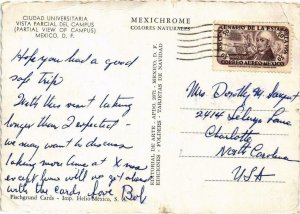 CIUDAD UNIVERSITARIA
VISTA PARCIAL DEL CAMPUS
(PARTIAL VIEW OF CAMPUS)
MEXICO, D. F.
MEXICHROME
COLORES NATURALES
Hope you had a good
safe trip
With this next taking
longer than I expected -
we may want to discuss
taking more time at X mas
except fares will no go down
with the cards. Love Bob
Fischgrund Cards - Imp. Helio-México, S. A.
EDITORIAL DE ARTE - APDO. 2071 - MEXICO, D. F.
EDICIONES - FOLDERS - TARJETAS DE NAVIDAD
CENTENARIO DE LA ESTAM
CORREO AEREO MEXICO
Mrs Dorothy M. Sargent
2414 Selwyn
Charlotte
North Carolina
U.S.A